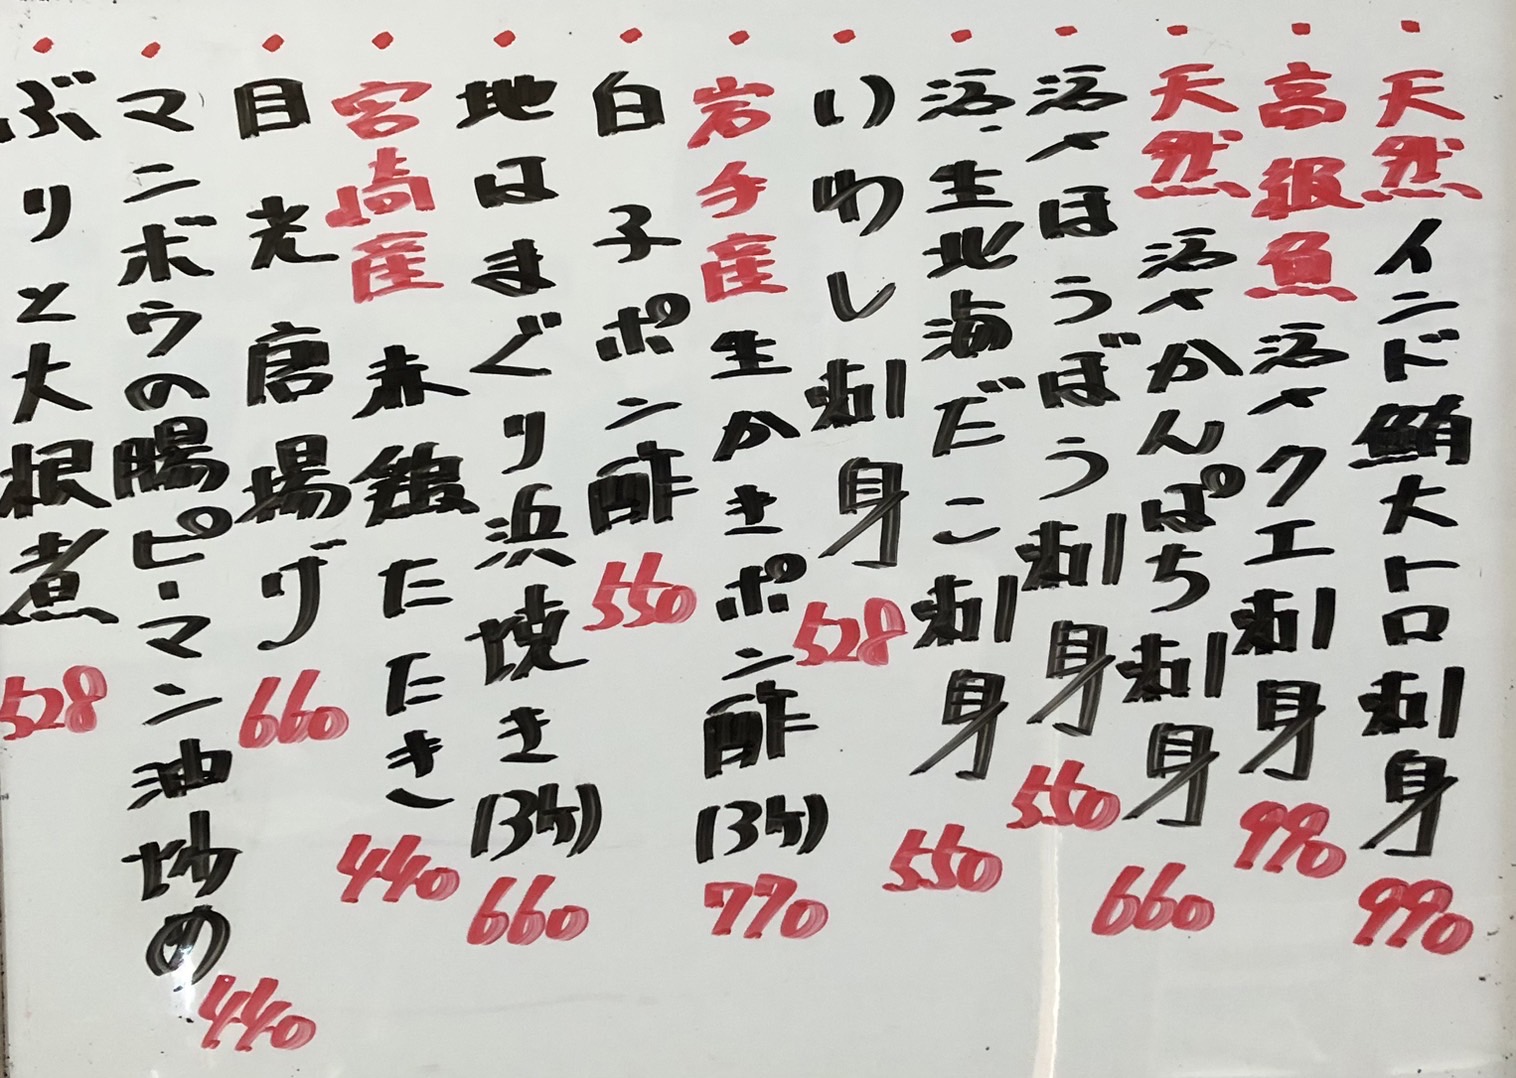 ・天然インド鮪大トロ刺身 990
・高級魚活〆クエ刺身 990
・天然活〆かんぱち刺身 660
・活〆ほうぼう刺身 550
・活・生地海だこ刺身 550
・いわし刺身 528
・岩手産生かきポン酢(3ケ) 770
・白子ポン酢 550
・地はまぐり浜焼き(3ケ) 660
・宮崎産赤鶏たたき 440
・目光唐揚げ 660
・マンボウの腸ピーマン油炒め 440
・ぶりと大根煮 528